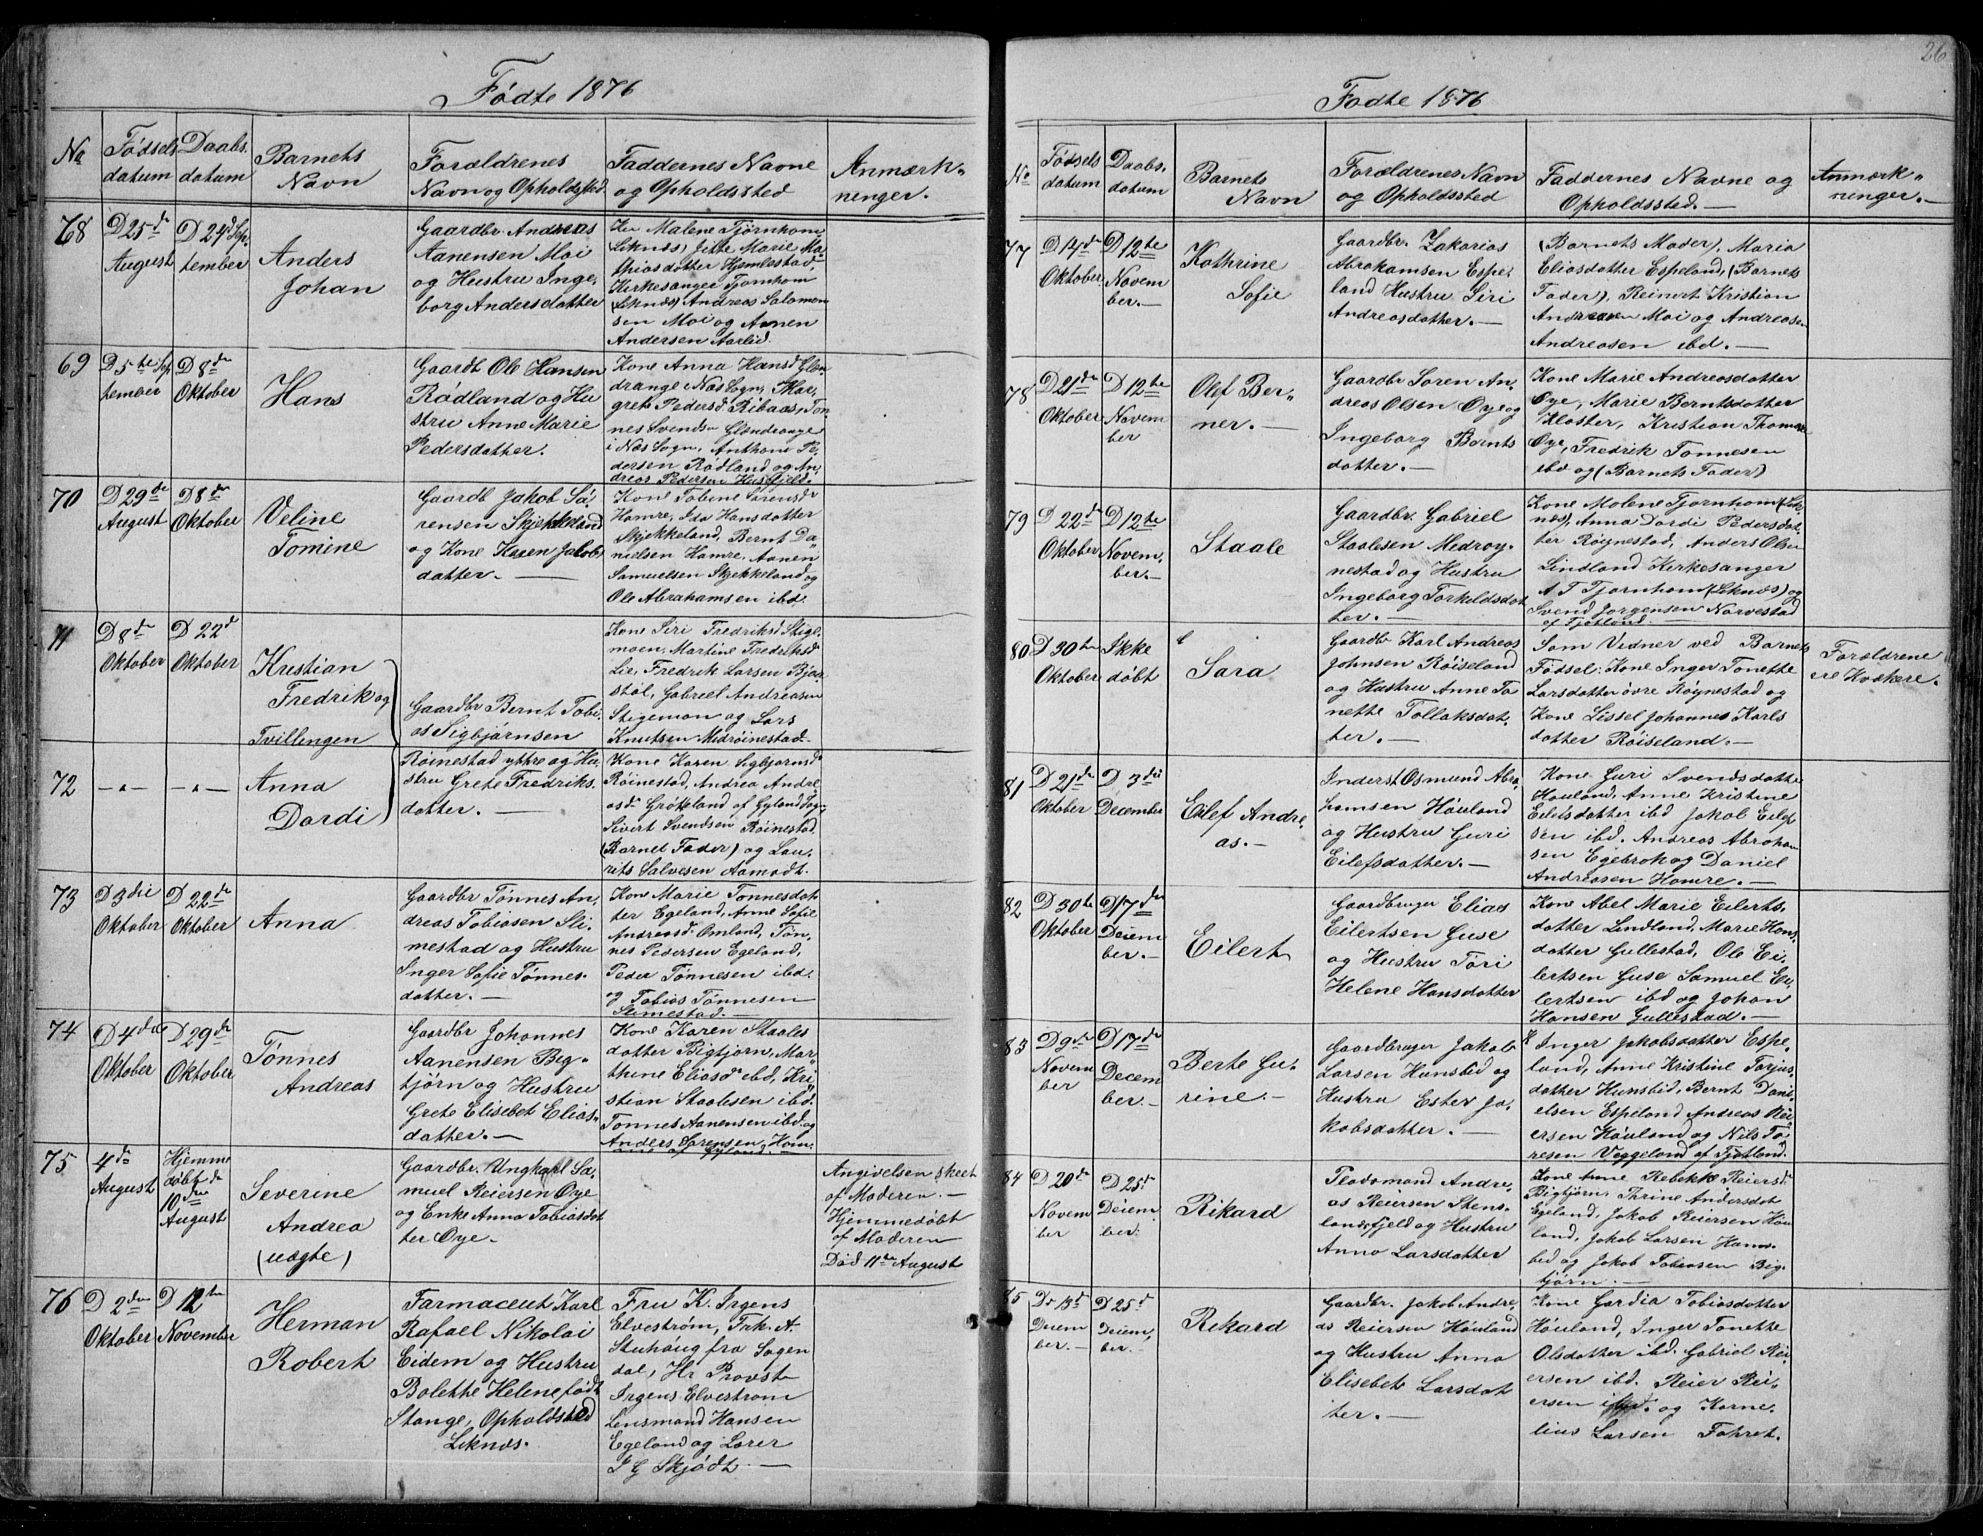 Fødte 1876
No
Fødsels
datum
Daabs.
datum
Barnets
Navn
Forældrenes
Navn og Opholdsted
Faddernes Navne
og Opholdssted
Anmærk-
ninger.
68
D 25de
August
D 24de Sep-
tember
Anders
Johan
Gaardbr Andreas
Aanensen Moi
og Hustru Inge,
borg Andersdatter
Malene Tjørnhom
(Leknæs) Jitte Marie Ma-
thiasdatter Hjemlestad,
Kirkesanger Tjornhom
(Leknæs) Andreas Salomon
sen Moi og Aanen
Andersen Aarlid.
69
D 5te Sep
tember
D 8de
Oktober
Hans
Gaardb Ole Hansen
Rødland og Hu
stru Anne Marie
Pedersdatter.
Kone Anna Hansd Glen
drange i Nas Sogn, Mar,
grete Pedersd Ribaas, Ton
nes Svends Glendrange
i Nas Sogn, Anthone Pe
dersen Rødland og An,
dreas Pedersen Husfjeld.
70
D 29de
August
D 8de
Oktober
Veline
Tomine
Gaardb Jakob Sø
rensen Skjekkeland
og Kone Karen Jakobs
datter. —
Kone Tobene Sørensd
Hamre, Ida Hansdatter
Skjekkeland, Bernt Da
nielsen Hamre, Aanen
Samuelsen Skjekkeland og
Ole Abrahamsen ibd.
71
D 8de
Oktober
D 22d
Oktober
Kristian
Fredrik og
Tvillingen
Gaardbr Bernt Tobi-
as Sigbjørnsen
Kone Siri Fredriksd Stige
moen, Martine Fredriksd
Lie, Fredrik Larsen Bjør
støl, Gabriel Andreasen
Stigemon og Lars
Knutsen Midrøinestad.
72
— " —
— " —
Anna
Dordi
Røinestad yttre og Hu,
stru Grete Fredriks.
datter. —
Kone Karen Sigbjørnsd
Røinestad, Andrea Andre
asd Grøkland af Gyland Sogn
Sivert Svendsen Røinestad
(Barnet Fader) og Lau,
rits Salvesen Aamodt.
73
D 3die
Oktober
D 22de
Oktober
Anna
Gaardbr Tønnes An,
dreas Tobiasen Sli-
mestad og Hustru
Inger Sofie Tønnes-
datter. —
Kone Marie Tonnesdat
ter Egeland, Anne Sofie
Andreasd Omland, Tøn,
nes Pedersen Egeland,
Peder Tønnesen ibd.
og Tobias Tønnesen
Slimestad. —
74
D 4de
Oktober
D 29de
Oktober
Tønnes
Andreas
Gaardbr Johannes
Aanensen Big-
tjørn og Hustru
Grete Elisebet Elias-
datter. —
Kone Karen Staales
datter Bigtjorn, Mar-
thine Eliasd ibd, Kri
stian Staalesen ibd.
Tonnes Aanensen ibd. og
Anders Sørensen, Hom-
me af Gyland. —
75
4de
August
Hjemme
døbt d
10de
August
Severine
Andrea
(uægte)
Gaardbr. Ungkarl Sa-
muel Reiersen Øye
og Enke Anna Tobiasdat
ter Øye. —
Angivelsen skeet
af Moderen. —
Hjemmedøbt
af Moderen
Død 11te August
76
D 2den
Oktober
D 12te
November
Herman
Robert
Farmaceut Karl
Rafael Nikolai
Eidem og Hustru
Bolette Helene født
Stange, Opholdsted
Leknæs.
Fru K. Irgens
Elvestrøm, Frk. A.
Stuhoug fra Sogen
dal, Hr Provst
Irgens Elvestrøm
Lensmand Hansen
Egeland og Lærer
I G Skjødt —
26
Fødte 1876
No
Fødsels
datum
Daabs.
datum
Barnets
Navn
Forældrenes Navn
og Opholdssted
Faddernes Navne og
Opholdssted. —
Anmærk-
ninger. —
77
D 14de
Oktober
D 12te
Novem
ber. —
Kathrine
Sofie
Gaardbr. Zakarias
Abrahamsen Espe,
land Hustru Siri
Andreasdatter. —
(Barnets Moder), Maria
Eliasdatter Espeland, (Barnets
Fader), Reinert Kristian
Andreasen Moi og Andreas
Andreasen ibd. —
78
D 21de
Oktober
D 12te
Novem
ber
Olef Ber-
ner. —
Gaardbr Søren An,
dreas Olsen Øye og
Ingeborg Bernts
datter. —
Kone Marie Andreasdatter
Øye, Marie Berntsdatter
Kloster, Kristian Thomas
Øye, Fredrik Tonnesen
ibd og (Barnets Fader)
79
D 22de
Oktober
D 12te
Novem-
ber. —
Staale
Gaardbr. Gabriel
Staalesen Medroy-
nestad og Hustru
Ingeborg Torkeldsdat
ter. —
Kone Malene Tjornhom (Lek
næs), Anna Dordi Pedersdat
ter Røynestad, Anders Olsen
Lindland Kirkesanger
A T Tjornhom (Leknæs) og
Svend Jorgensen Narvestad
af Fjotland. —
80
D 30te
Oktober
Ikke
døbt
Sara
Gaardbr Karl Andreas
Johnsen Røiseland
og Hustru Anne To
nette Tollaksdat,
ter. —
Som Vidner ved Barnets
Fødsel: Kone Inger Tonette
Larsdatter øvre Røynestad og
Kone Lissel Johanne Karls
datter Røiseland. —
Forældrene
ere Kvækere.
81
D 21de
Oktober
D 3die
December
Eilef Andre,
as. —
Inderst Osmund Abra,
hamsen Høuland
og Hustru Guri
Eilefsdatter. —
Kone Guri Svendsdatter
Høuland, Anne Kristine
Eilefsdatter ibd Jakob Eilef
sen ibd. Andreas Abraham
sen Egebrok og Daniel
Andreasen Homre. —
82
D 30te
Oktober
D 17de
Decem
ber. —
Eilert
Gaardbruger Elias
Eilertsen Guse
og Hustru Tori
Helene Hansdatter
Kone Abel Marie Eilerts,
datter Lindland, Marie Hans,
datter Gullestad, Ole Ei,
lertsen Guse Samuel Ei,
lertsen ibd og Johan
Hansen Gullestad. —
83
D 9de
Novem
ber
D 17de
Decem
ber. —
Berte Gu-
rine. —
Gaardbruger Jakob
Larsen Hunsbid og
Hustru Ester Ja,
kobsdatter. —
Inger Jakobsdatter Espe,
land, Anne Kristine Torjus,
datter Hunsbid, Bernt Dani-
elsen Espeland Andreas Rei
ersen Høuland og Nils To
resen Veggeland af Fjotland.
84
D 20de
Novem
ber
D 25de
Decem
ber.
Rikard
Pladsmand Andre,
as Reiersen Stens,
landsfjeld og Hustru
Anna Larsdatter
Kone Anne Rebekke Reiersd
Bigtjørn, Thrine Andersdat
Egeland, Jakob Reiersen Høu
land, Jakob Larsen Huns-
bed og Jakob Tobiasen Big-
tjørn. —
85
D. 13de
Decem
ber. —
D 25de
Decem,
ber. —
Rikard
Gaardbr. Jakob Andre,
as Reiersen Høuland
og Hustru Anna
Elisebet Larsdat
ter. —
Kone Gardia Tobiasdatter
Høuland, Inger Tonette
Olsdatter ibd. Gabriel Rei-
ersen ibd. Reier Rei-
ersen ibd. og Korne-
lius Larsen Fahret.